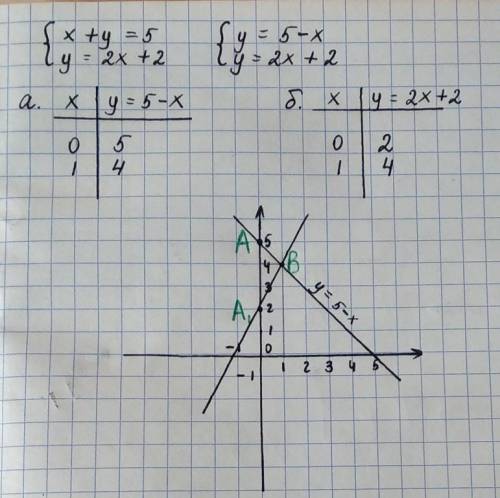 x + y = 5
y = 2x + 2
y = 5 - x
y = 2x + 2
а. x y = 5 - x
0 5
1 4
б. x y = 2x + 2
0 2
1 4
A 5
4 B
3
A₁ 2
1
-1 0
-1 1 2 3 4 5
y = 5 - x